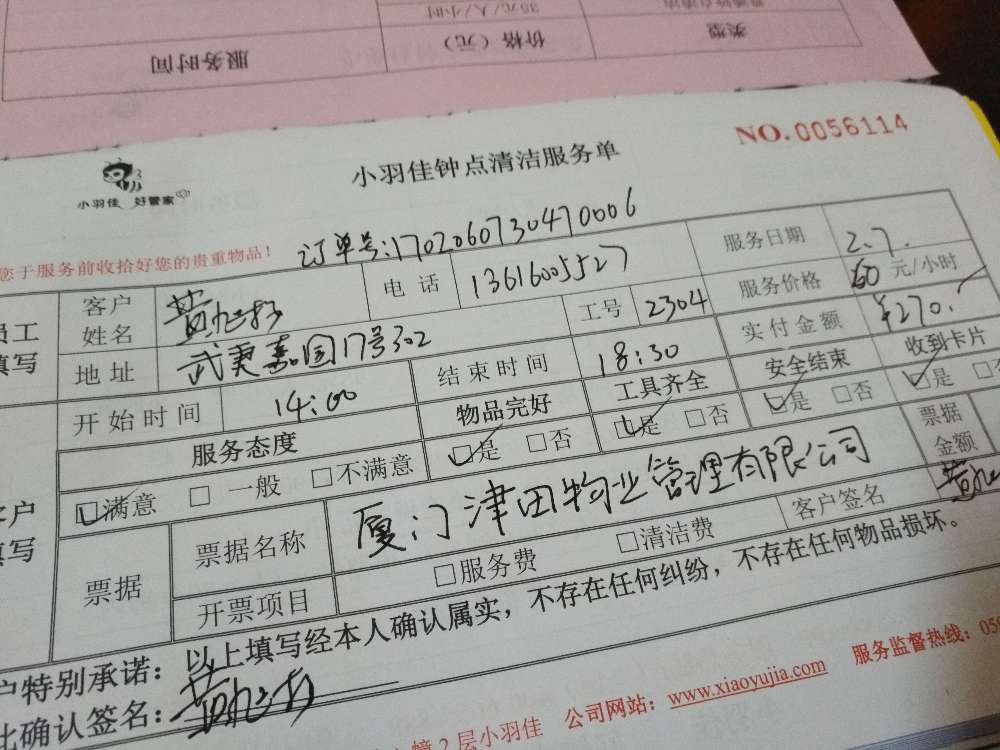 服务时间 价格（元） 类型
30元/人/小时
NO.0056114
小羽佳 好管家
小羽佳钟点清洁服务单
您于服务前收拾好您的贵重物品！ 订单号:1702060730470006
员工填写
客户姓名 电话 13616005527 服务日期 2.7.
地址 武夷嘉园17号302 工号 2304 服务价格 60 元/小时
开始时间 14:00 结束时间 18:30 实付金额 ¥270.
服务态度 物品完好 工具齐全 安全结束 收到卡片
☑满意 □一般 □不满意 ☑是 □否 ☑是 □否 ☑是 □否 ☑是
客户填写
票据 票据名称 厦门津田物业管理有限公司 票据金额
开票项目 □服务费 □清洁费 客户签名
户特别承诺：以上填写经本人确认属实，不存在任何纠纷，不存在任何物品损坏。
此确认签名：
幢2层小羽佳 公司网站：www.xiaoyujia.com 服务监督热线：05